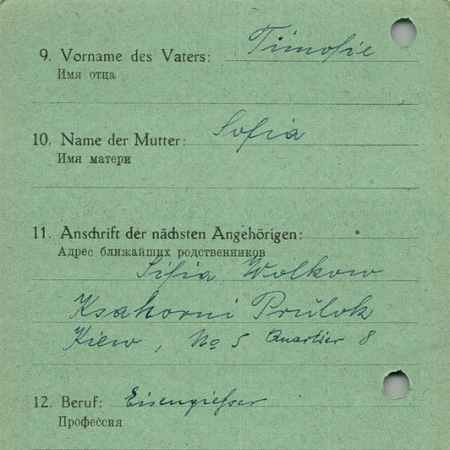 9. Vorname des Vaters: Timofie
Имя отца
10. Name der Mutter: Sofia
Имя матери
11. Anschrift der nächsten Angehörigen:
Адрес ближайших родственников
Sifia Wolkow
Ksakorni Prulok
Kiew, No 5 Quartier 8
12. Beruf: Eisengießer
Профессия